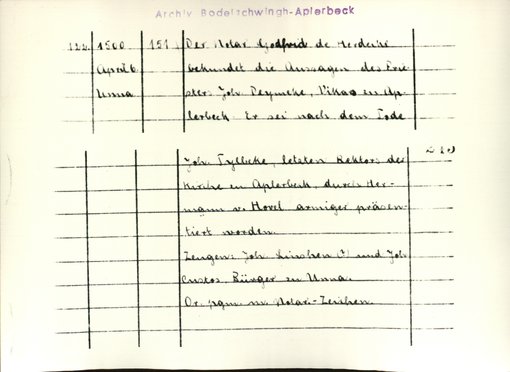 Archiv Bodelschwingh-Aplerbeck
122. 1500 151 Der Notar Godfrid de Herdeike
April 6 bekundet die Aussagen des Prie-
Unna sters Joh. Deymeke, Vikar in Ap-
lerbeck. Er sei nach dem Tode
Joh. Tylbeke, letzten Rektors der
Kirche in Aplerbeck, durch Her-
mann v. Hövel armiger präsen-
tiert worden.
Zeugen: Joh. Linschen (?) und Joh
Custos, Bürger in Unna.
Or. pgm. m. Notar-Zeichen.